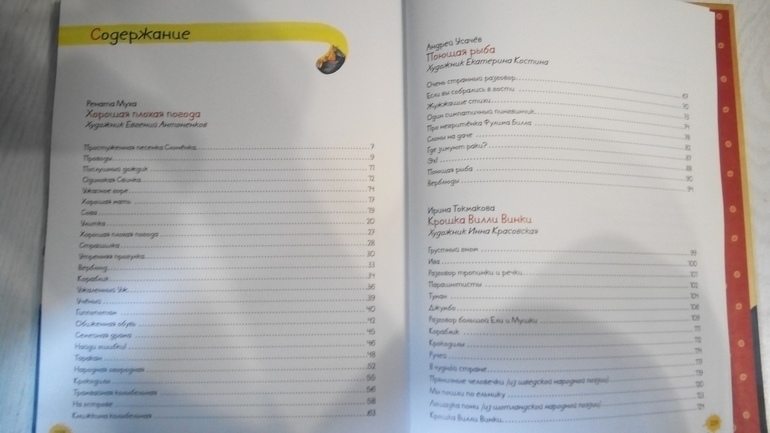 Содержание
Рената Муха
Хорошая плохая погода
Художник Евгений Антоненков
Простуженная песенка Слонёнка 7
Проводы 9
Послушный дождик 11
Одинокая Свинка 12
Ужасное горе 14
Хорошая мать 17
Сова 19
Улитка 20
Хорошая плохая погода 27
Страшилка 28
Утренняя прогулка 30
Верблюд 33
Кораблик 34
Ужаленный Уж 36
Учёный 39
Гиппопотам 40
Обиженная обувь 42
Семейная драма 45
Найди ошибку! 46
Таракан 48
Народная огородная 52
Крокодилы 55
Трамвайная колыбельная 56
На острове 58
Книжкина колыбельная 63
Андрей Усачёв
Поющая рыба
Художник Екатерина Костина
Очень странный разговор
Если вы собрались в гости 67
Жужжащие стихи 70
Один симпатичный пингвинчик 73
Про негритёнка Фулима Билла 74
Слоны на даче 78
Где зимуют раки? 82
Эх! 87
Поющая рыба 88
Верблюды 90
94
Ирина Токмакова
Крошка Вилли Винки
Художник Инна Красовская
Грустный гном 99
Ива 100
Разговор тропинки и речки 101
Парашютисты 102
Туман 104
Джумбо 108
Разговор большой Ели и Мушки 109
Кораблик
Крокодилы
Ручей
В чудной стране
Пряничные человечки (из шведской народной поэзии)
Мы пошли по ельнику
Лошадка пони (из шотландской народной поэзии)
Крошка Вилли Винки